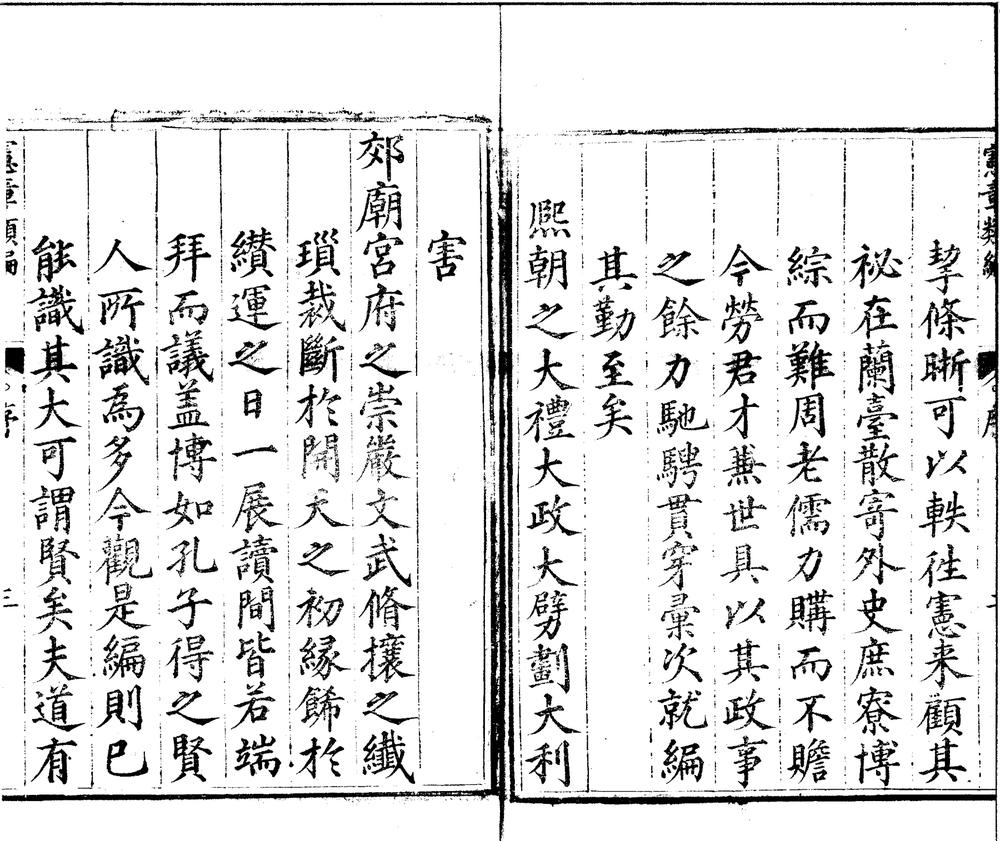 憲章類編
序
挈條晣可以軼徃憲来顧其
祕在蘭臺散寄外史庶寮博
綜而難周老儒力購而不贍
今勞君才蕪世具以其政事
之餘力馳騁貫穿彙次就編
其勤至矣
熈朝之大禮大政大劈劃大利
害
郊廟宮府之崇嚴文武脩攘之纖
瑣裁斷於開天之初緣餙於
纉運之日一展讀間皆若端
拜而議蓋博如孔子得之賢
人所識為多今觀是編則已
能識其大可謂賢矣夫道有
憲章類編
序
三